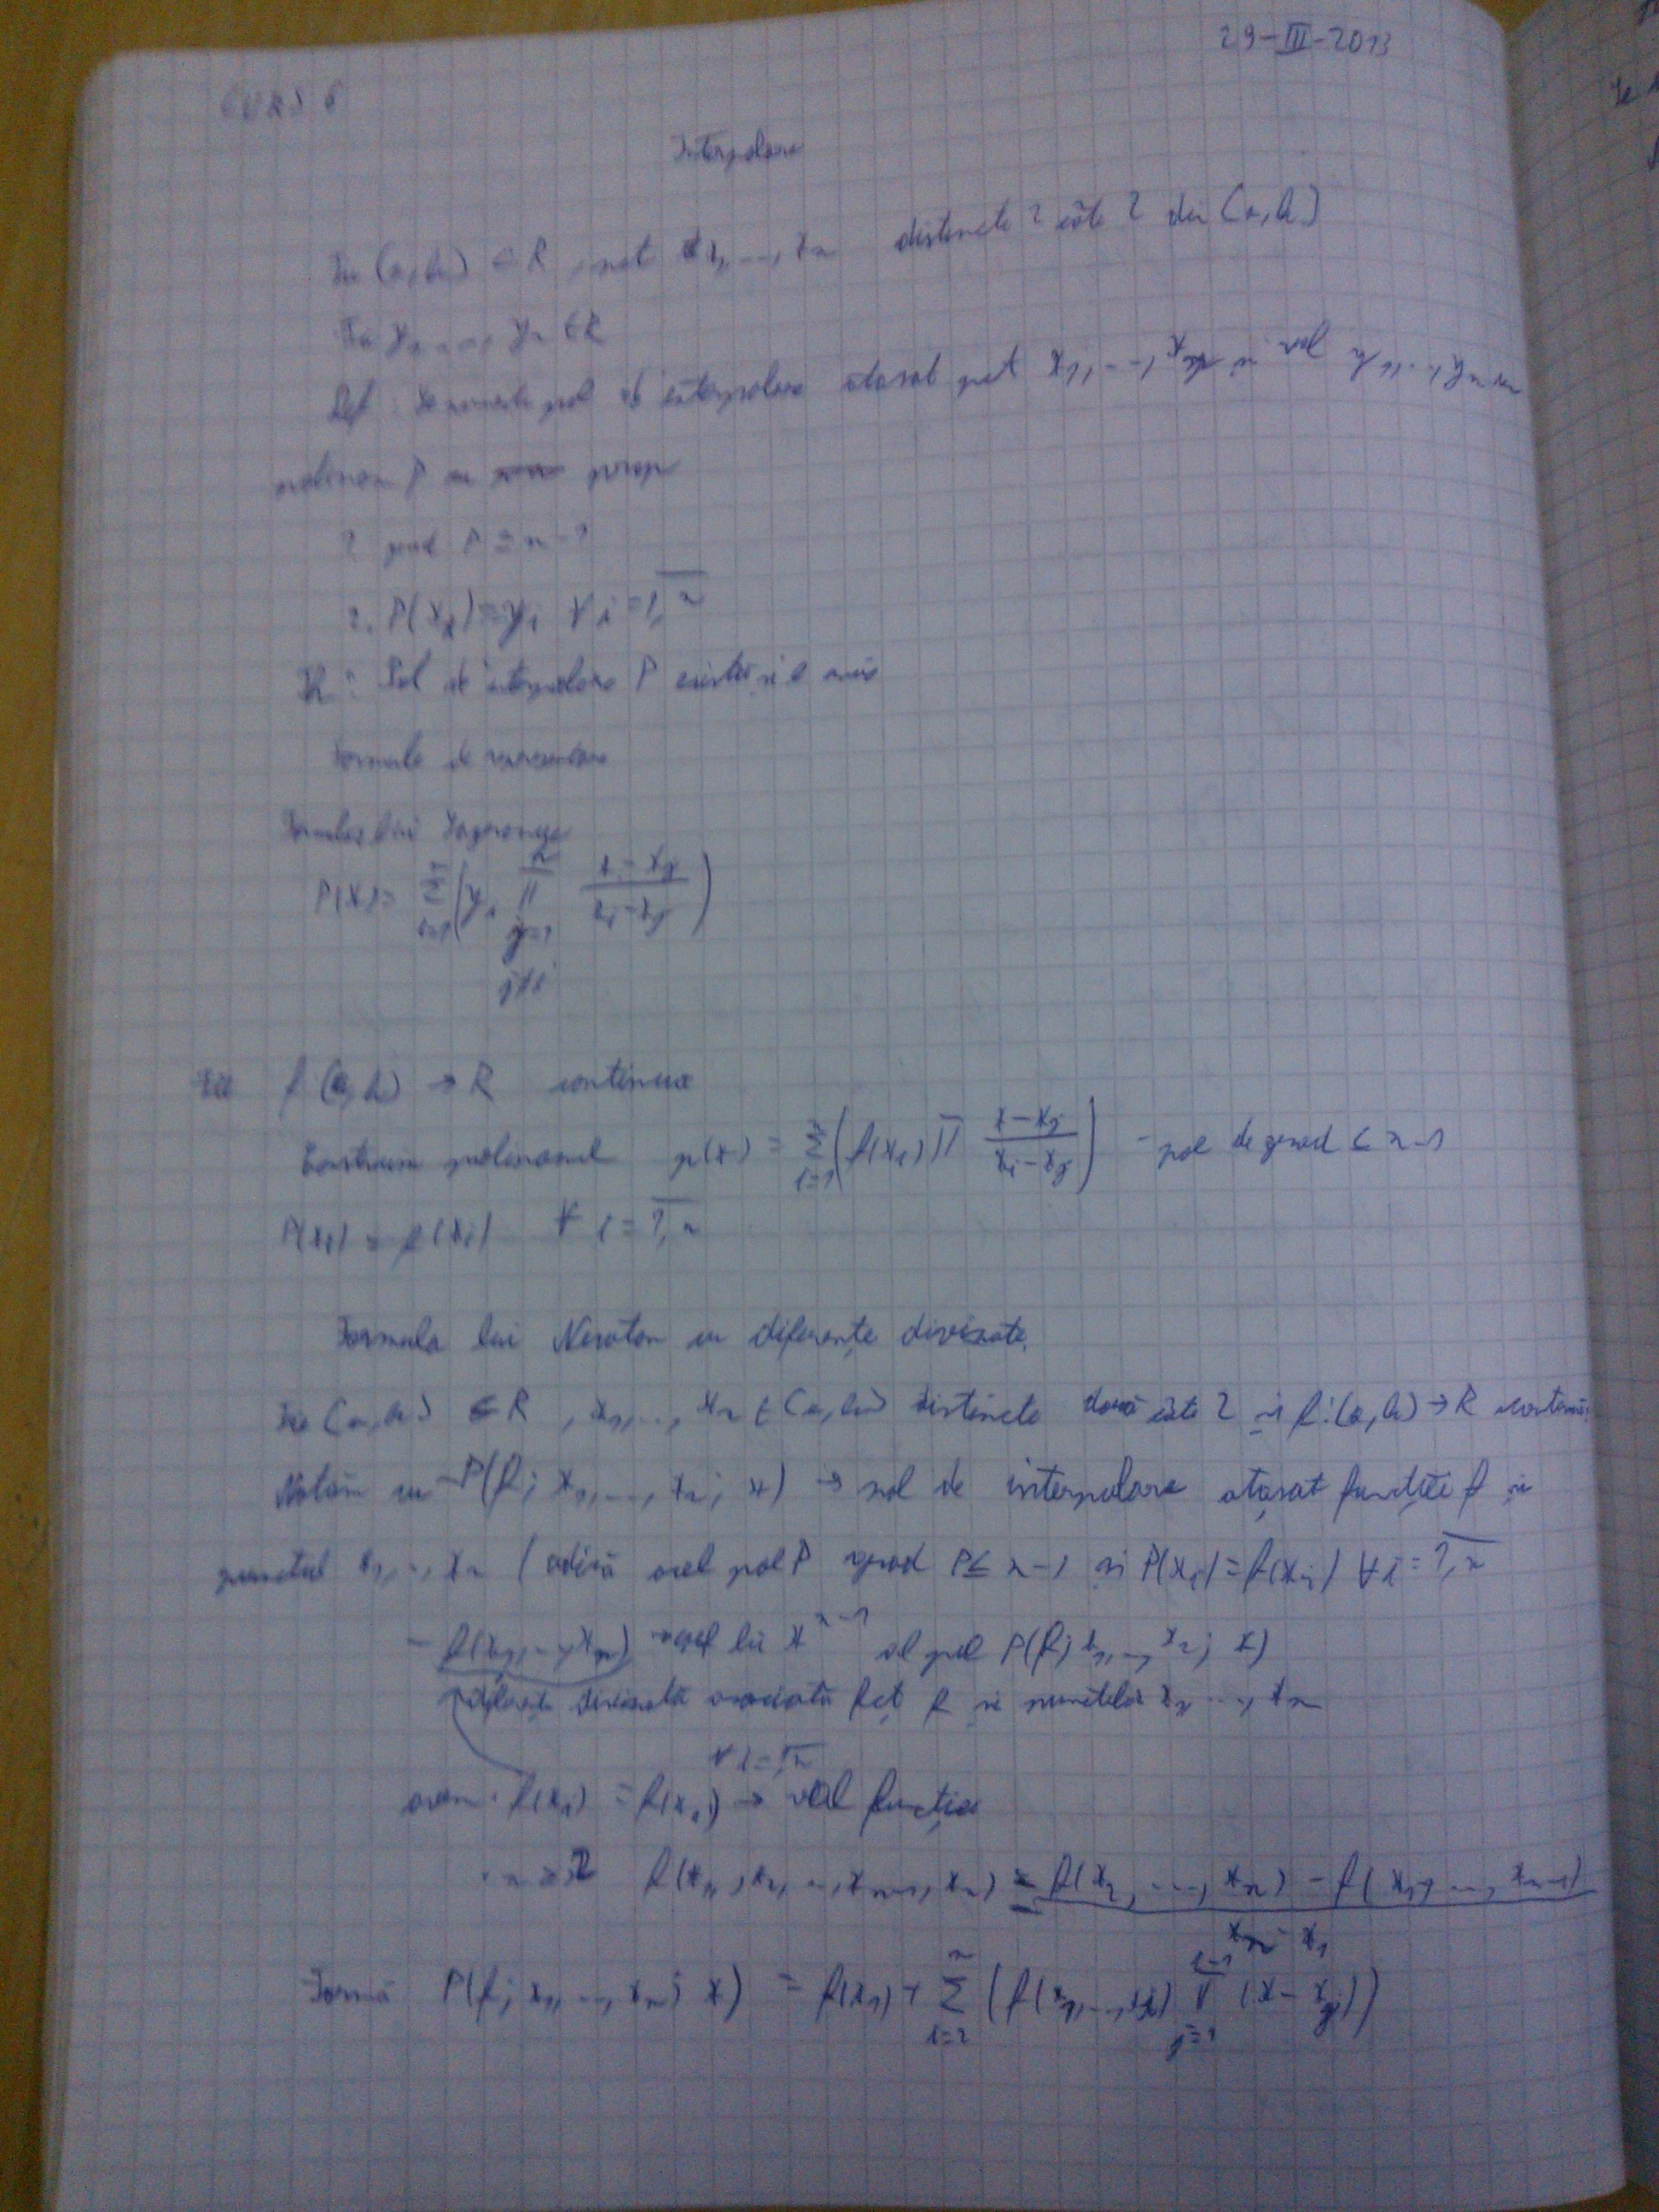 29-III-2013
CURS 6
Interpolare
Fie (a,b) ⊂ R, pct x1, ..., xn distincte 2 câte 2 din (a,b)
Fie y1, ..., yn ∈ R
Def: Se numeste pol de interpolare atasat pct x1, ..., xn si val y1, ..., yn un
polinom P cu prop
1 grad P ≤ n-1
2. P(xi) = yi ∀ i = 1,n
Pol de interpolare P exista si e unic
Formule de
Formula lui Lagrange
P(x) = Σ i=1 n (yi Π j=1 j≠i n (x - xj)/(xi - xj))
Fie f (a,b) → R continua
Construim polinomul p(x) = Σ i=1 n (f(xi) Π (x - xj)/(xi - xj)) - pol de grad ≤ n-1
P(xi) = f(xi) ∀ i = 1,n
Formula lui Newton cu diferențe divizate.
Fie (a,b) ⊂ R, x1, ..., xn ∈ (a,b) distincte două câte 2 si f:(a,b) → R
Notăm cu P(f; x1, ..., xn; x) → pol de interpolare atașat funcției f si
punctul x1, ..., xn (adică acel pol P grad P ≤ n-1 si P(xi) = f(xi) ∀ i = 1,n
- f(x1, ..., xn) → coef lui x^n-1 al pol P(f; x1, ..., xn; x)
diferența divizată asociată fct f si punctelor x1, ..., xn
∀ i = 1,n
avem · f(xi) = f(xi) → val funcției
· n ≥ 2 f(x1, x2, ..., xn-1, xn) = (f(x2, ..., xn) - f(x1, ..., xn-1))/(xn - x1)
P(f; x1, ..., xn; x) = f(x1) + Σ i=2 n (f(x1, ..., xi) Π j=1 i-1 (x - xj))